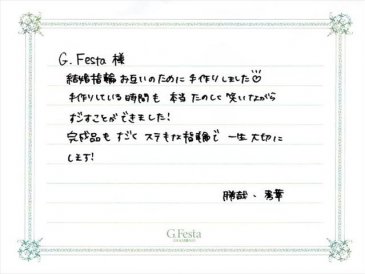 G.Festa 様
結婚指輪お互いのために手作りしました♡
手作りしている時間も 本当 たのしく笑いながら
すごすことができました!
完成品も すごく ステキな指輪で 一生 大切に
します!
勝哉、
G.Festa